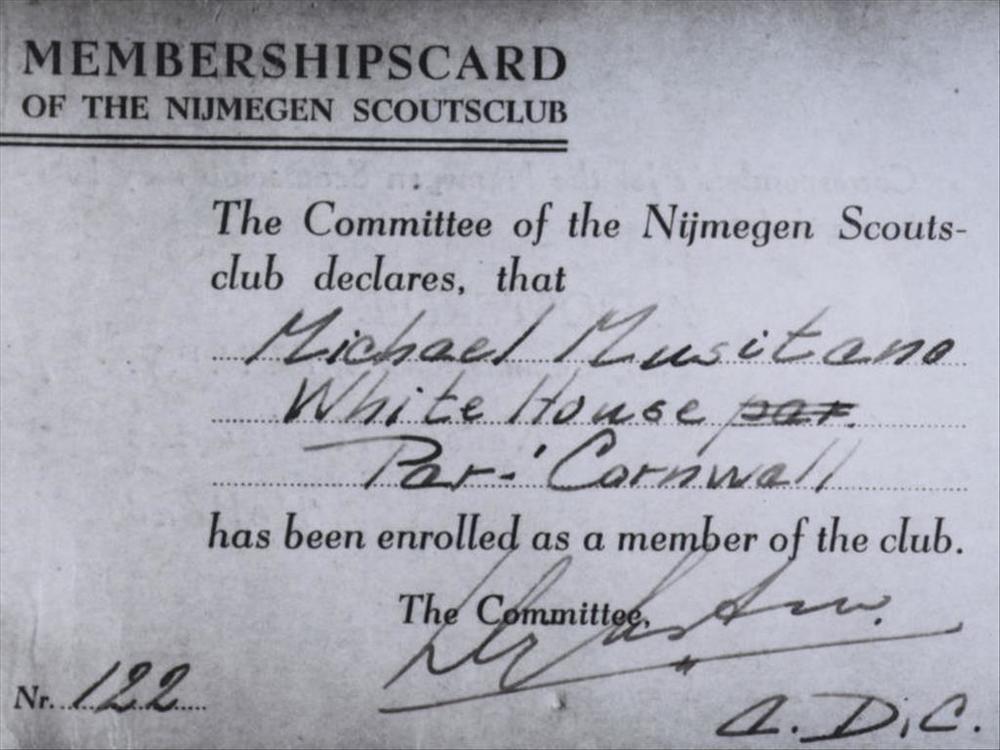 MEMBERSHIPSCARD
OF THE NIJMEGEN SCOUTSCLUB
The Committee of the Nijmegen Scouts-
club declares, that
Michael Musitano
White House par.
Par- Cornwall
has been enrolled as a member of the club.
The Committee,
Nr. 122
A. D. C.